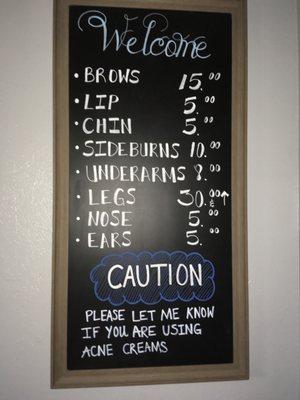 Welcome
• BROWS 15.00
• LIP 5.00
• CHIN 5.00
• SIDEBURNS 10.00
• UNDERARMS 8.00
• LEGS 30.00 & ↑
• NOSE 5.00
• EARS 5.00
CAUTION
PLEASE LET ME KNOW
IF YOU ARE USING
ACNE CREAMS